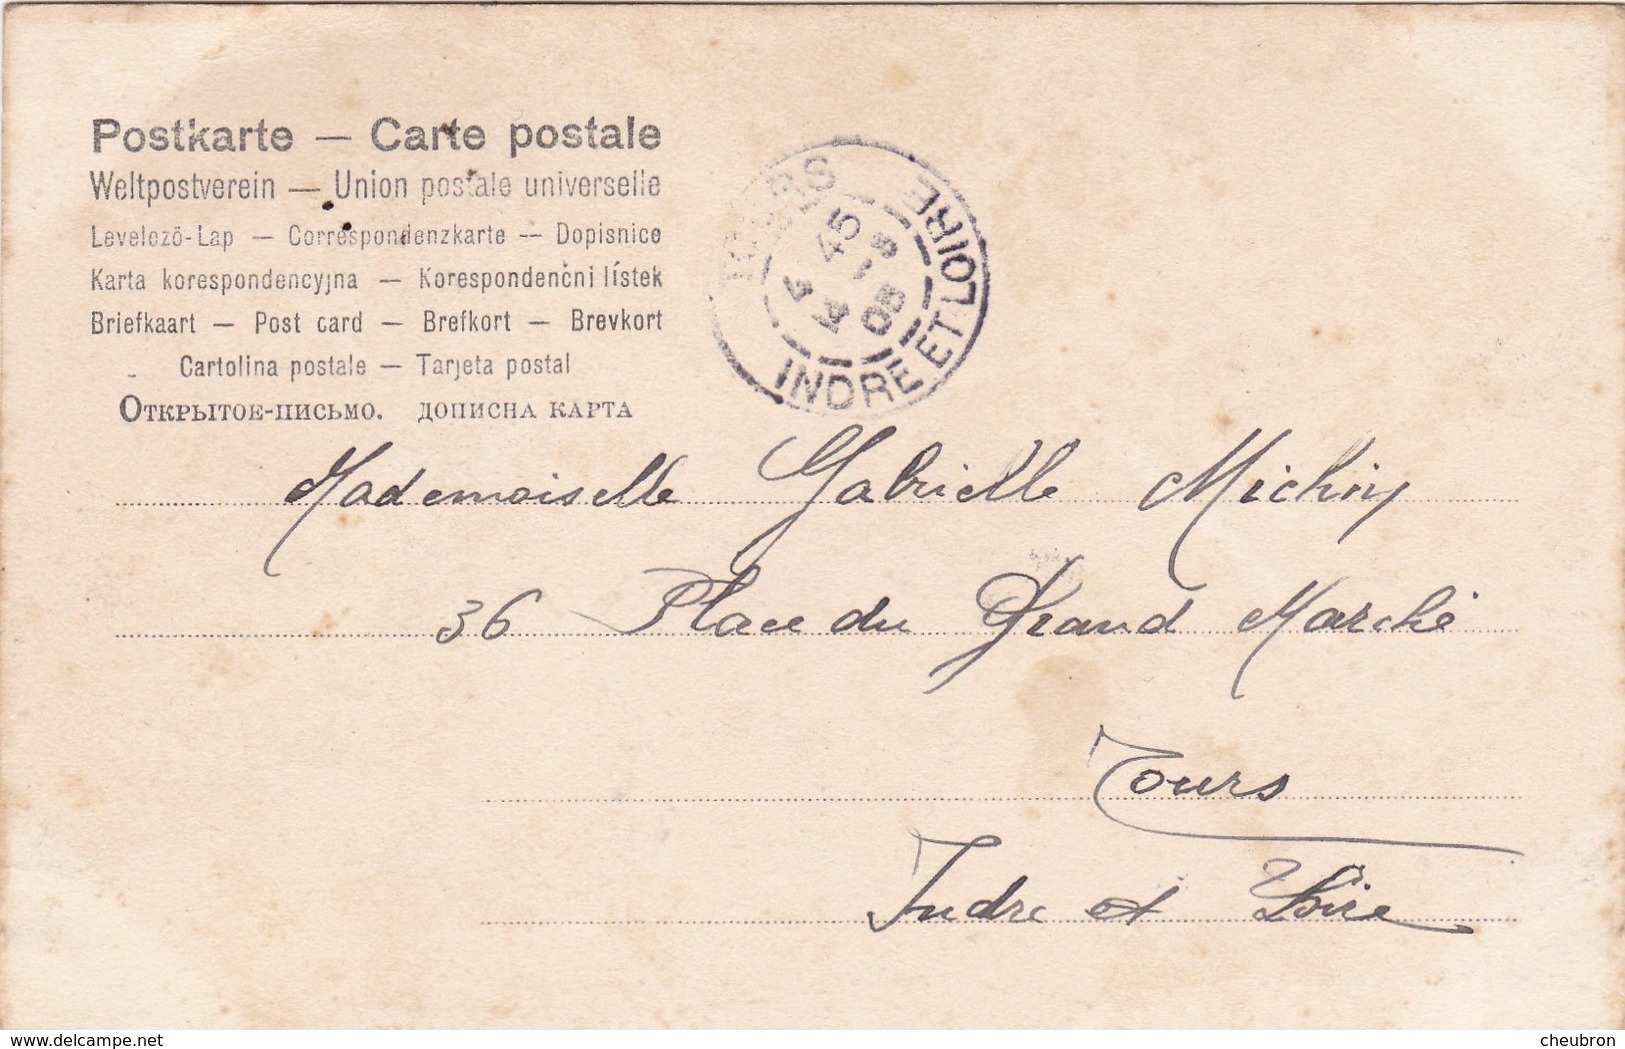 Postkarte — Carte postale
Weltpostverein — Union postale universelle
Levelező-Lap — Correspondenzkarte — Dopisnice
Karta korespondencyjna — Korespondenční lístek
Briefkaart — Post card — Brefkort — Brevkort
Cartolina postale — Tarjeta postal
Открытое-письмо. дописна карта
TOURS
INDRE ET LOIRE
Mademoiselle Gabrielle
36 Place du Grand Marché
Tours
Indre et Loire
delcampe.net
cheubron